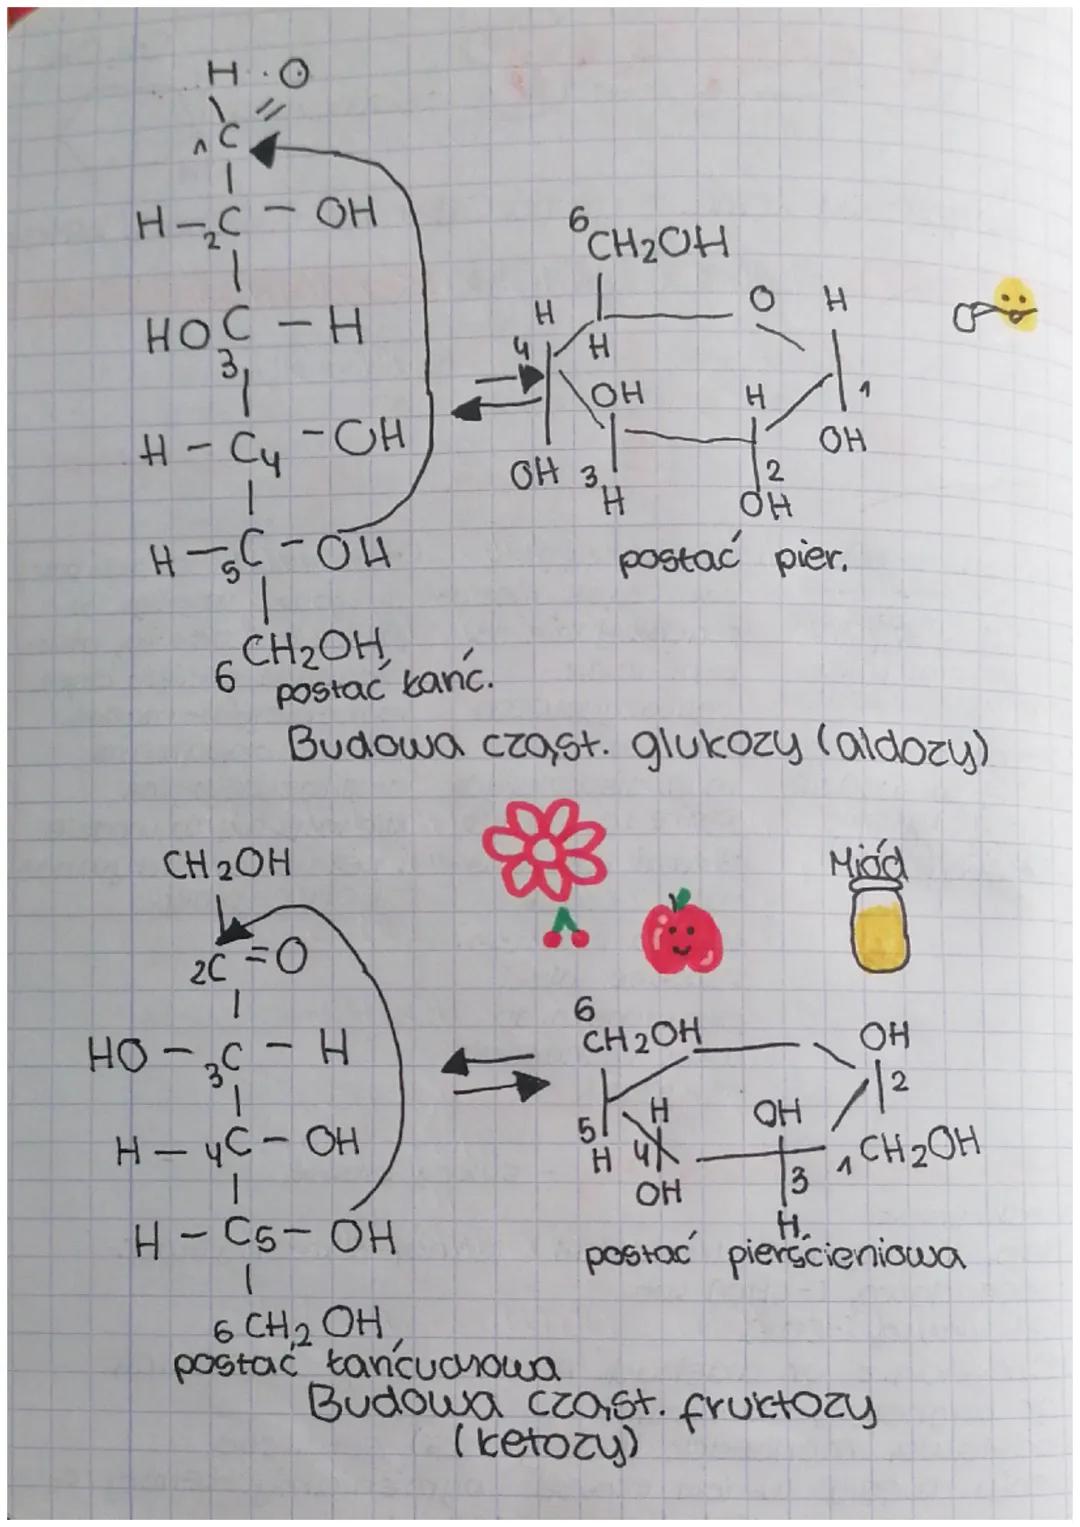 H O
1 C
H - 2C - OH
HO C - H
3
H - C4 - OH
H - 5C - OH
6 CH2OH
postać łańc.
6
CH2OH
H O H
4 H
OH H 1
OH 3 2 OH
H OH
postać pier.
Budowa cząst. glukozy (aldozy)
CH2OH
2C = O
HO - 3C - H
H - 4C - OH
H - C5 - OH
6 CH2OH
postać łańcuchowa
Miód
6
CH2OH OH
2
5 H OH
H 4 1 CH2OH
OH 3
H
postać pierścieniowa
Budowa cząst. fruktozy
(ketozy)